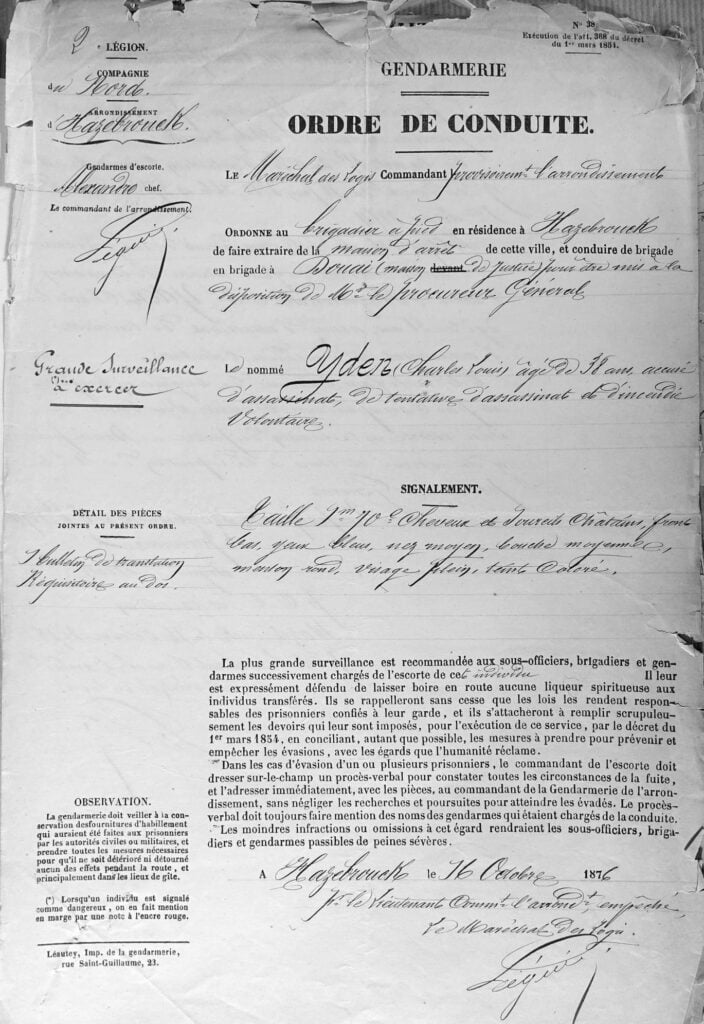 N° 38
Exécution de l'art. 368 du décret
du 1er mars 1854.
2e LÉGION.
COMPAGNIE
du Nord.
ARRONDISSEMENT
d'Hazebrouck.
Gendarmes d'escorte.
Alexandre chef.
Le commandant de l'arrondissement.
GENDARMERIE
ORDRE DE CONDUITE.
LE Maréchal des logis Commandant provisoiremt l'arrondissement
ORDONNE AU brigadier à pied en résidence à Hazebrouck
de faire extraire de la maison d'arrêt de cette ville, et conduire de brigade
en brigade à Douai (maison devant de Justice) pour être mis à la
disposition de Mr le procureur Général
Grande Surveillance
à exercer
Le nommé Yden (Charles Louis) âgé de 38 ans, accusé
d'assassinat, de tentative d'assassinat et d'incendie
Volontaire.
SIGNALEMENT.
Taille 1m 70c Cheveux et Sourcils Châtains, front
bas, yeux bleus, nez moyen, bouche moyenne,
menton rond, visage plein, teint Coloré.
DÉTAIL DES PIÈCES
JOINTES AU PRÉSENT ORDRE.
1 bulletin de translation
Réquisitoire au dos.
La plus grande surveillance est recommandée aux sous-officiers, brigadiers et gen-
darmes successivement chargés de l'escorte de cet individu Il leur
est expressément défendu de laisser boire en route aucune liqueur spiritueuse aux
individus transférés. Ils se rappelleront sans cesse que les lois les rendent respon-
sables des prisonniers confiés à leur garde, et ils s'attacheront à remplir scrupuleu-
sement les devoirs qui leur sont imposés, pour l'exécution de ce service, par le décret du
1er mars 1854, en conciliant, autant que possible, les mesures à prendre pour prévenir et
empêcher les évasions, avec les égards que l'humanité réclame.
Dans les cas d'évasion d'un ou plusieurs prisonniers, le commandant de l'escorte doit
dresser sur-le-champ un procès-verbal pour constater toutes les circonstances de la fuite,
et l'adresser immédiatement, avec les pièces, au commandant de la Gendarmerie de l'arron-
dissement, sans négliger les recherches et poursuites pour atteindre les évadés. Le procès-
verbal doit toujours faire mention des noms des gendarmes qui étaient chargés de la conduite.
Les moindres infractions ou omissions à cet égard rendraient les sous-officiers, briga-
diers et gendarmes passibles de peines sévères.
OBSERVATION.
La gendarmerie doit veiller à la con-
servation des fournitures d'habillement
qui auraient été faites aux prisonniers
par les autorités civiles ou militaires, et
prendre toutes les mesures nécessaires
pour qu'il ne soit détérioré ni détourné
aucun des effets pendant la route, et
principalement dans les lieux de gîte.
(*) Lorsqu'un individu est signalé
comme dangereux, on en fait mention
en marge par une note à l'encre rouge.
Léautey, Imp. de la gendarmerie,
rue Saint-Guillaume, 23.
A Hazebrouck le 16 Octobre 1876
pr le Lieutenant Commt l'arrondt, empêché,
Le Maréchal des logis.